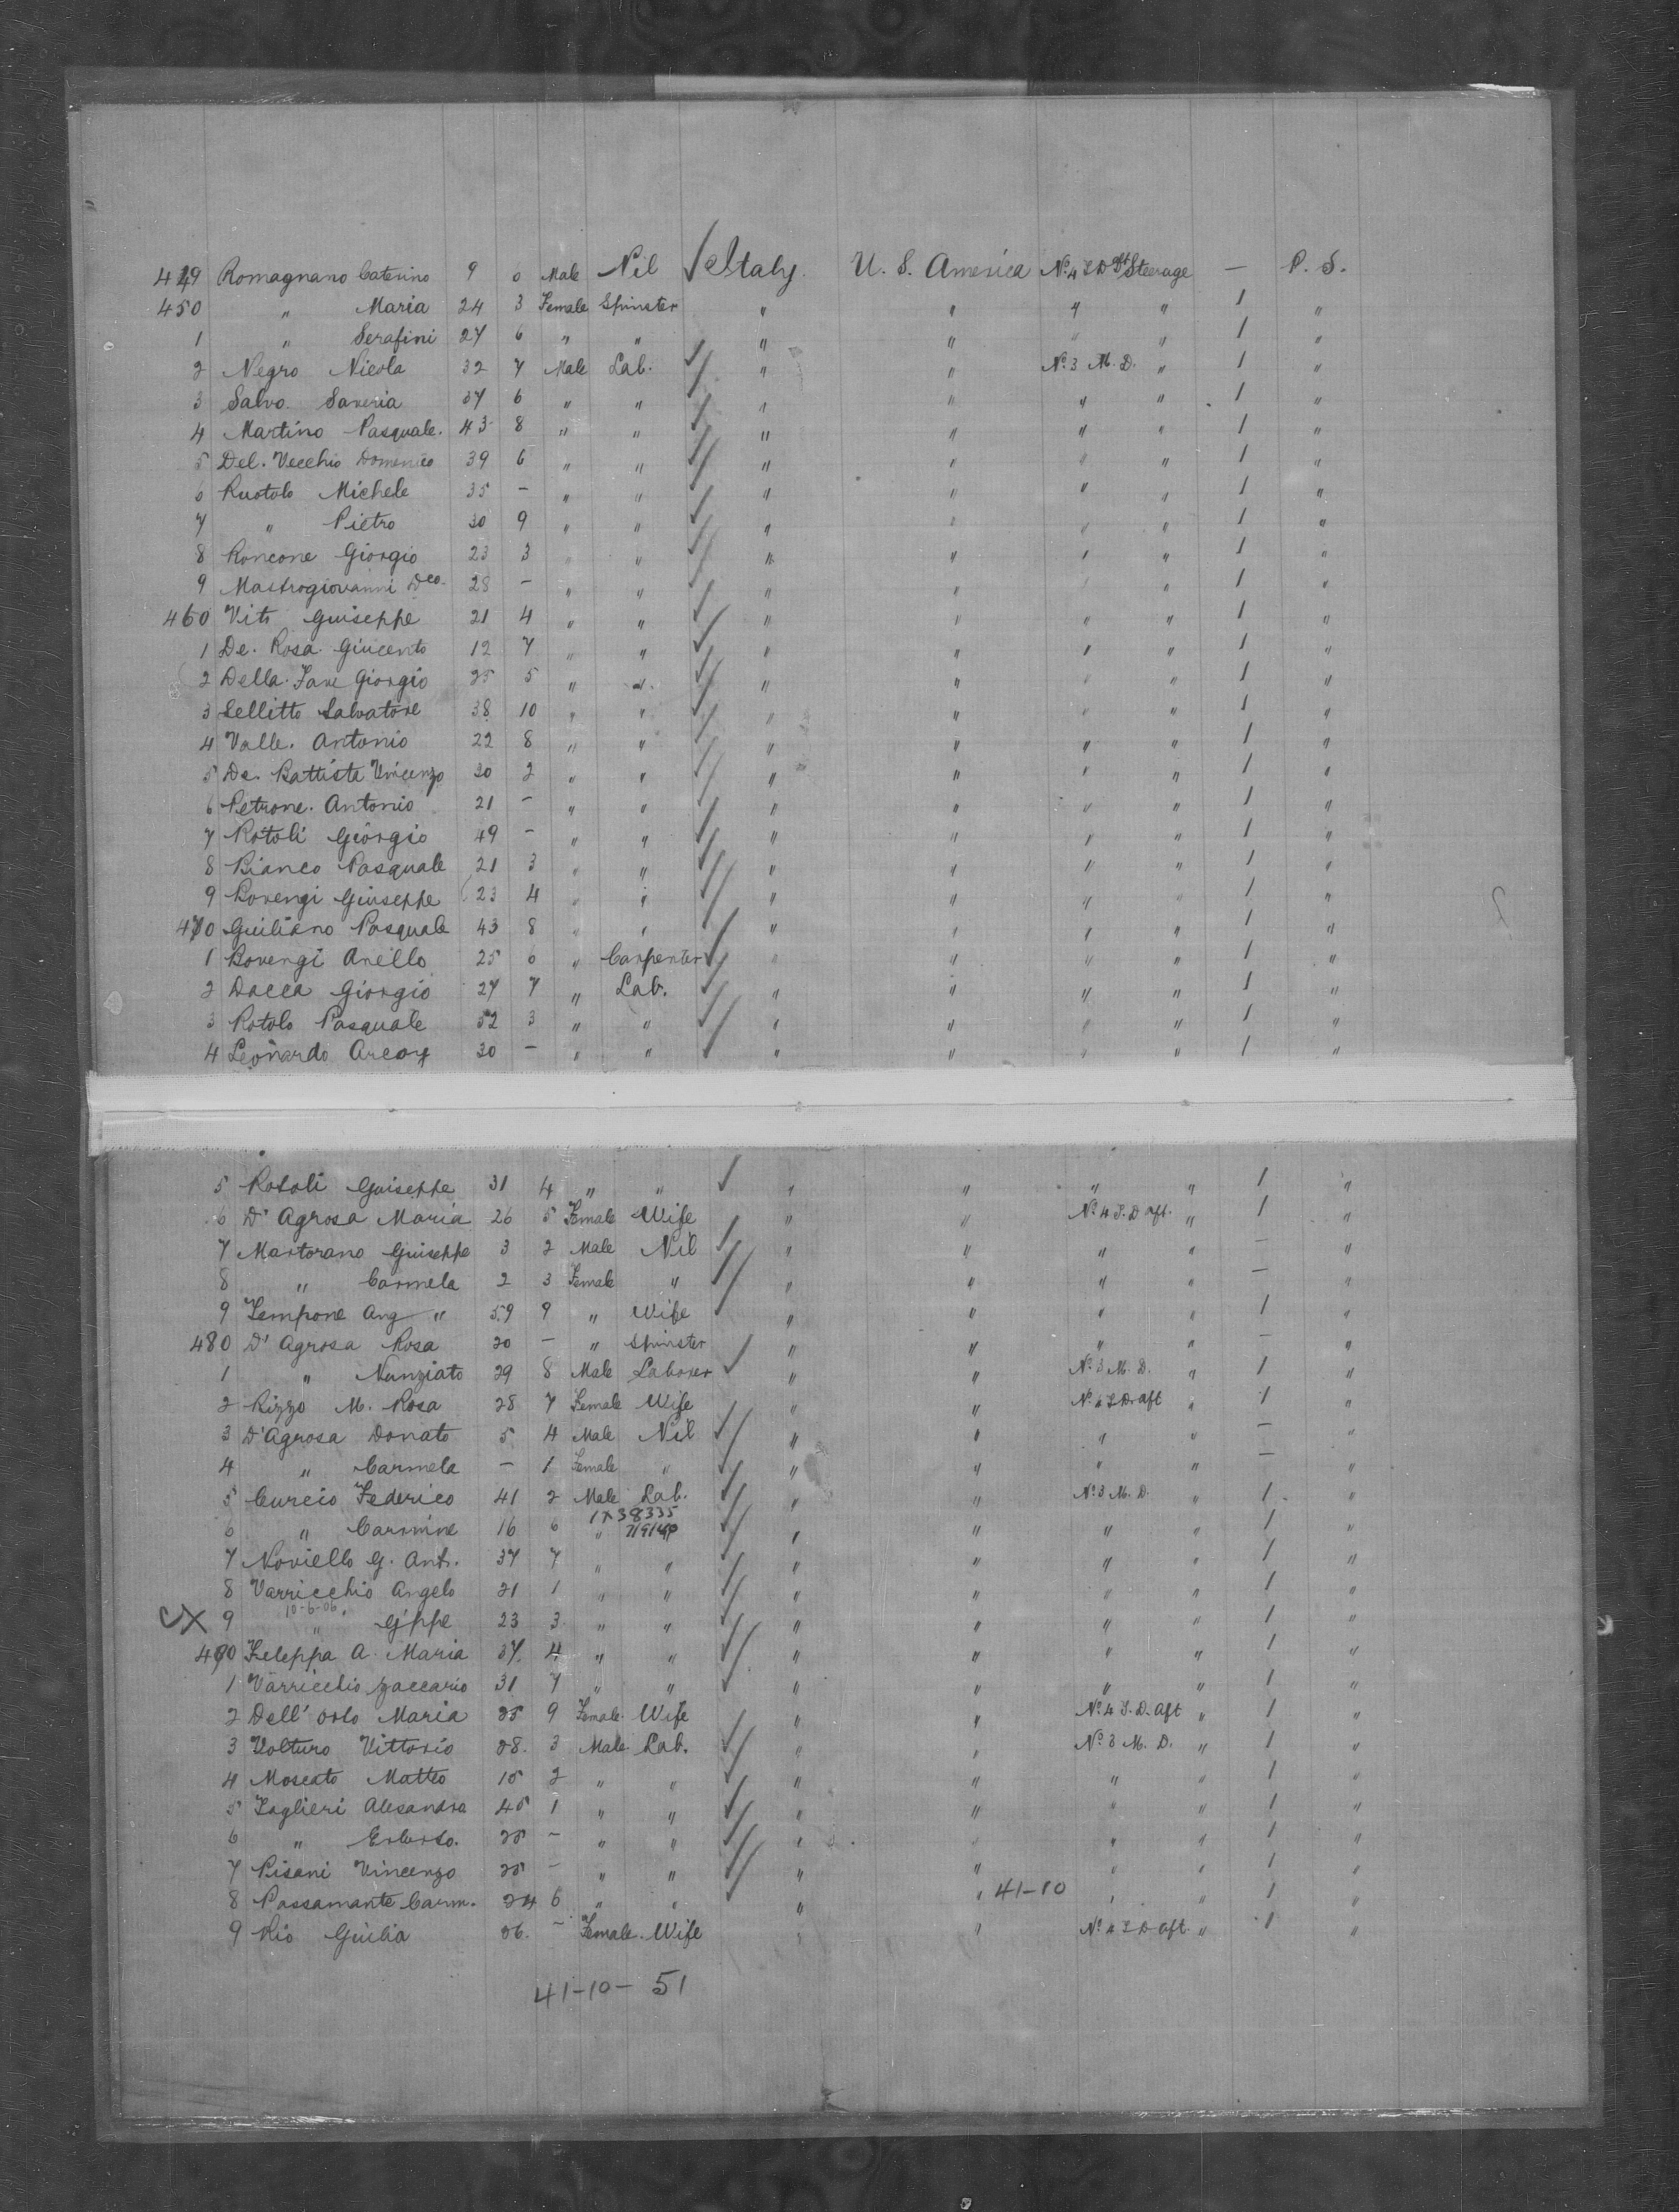 449 Romagnano Caterino 9 6 Male Nil ✓ Italy U. S. America No. 4 S D Aft Steerage — P. S.
450 " Maria 24 3 Female Spinster " " " " 1 "
1 " Serafini 27 6 " " " " " " 1 "
2 Negro Nicola 32 7 Male Lab. ✓ " " No. 3 M. D. " 1 "
3 Salvo. Saveria 37 6 " " ✓ " " " " 1 "
4 Martino Pasquale. 43 8 " " ✓ " " " " 1 "
5 Del. Vecchio Domenico 39 6 " " ✓ " " " " 1 "
6 Ruotolo Michele 35 – " " ✓ " " " " 1 "
7 " Pietro 30 9 " " ✓ " " " " 1 "
8 Roncone Giorgio 23 3 " " ✓ " " " " 1 "
9 Mastrogiovanni Dco. 28 – " " ✓ " " " " 1 "
460 Vito Guiseppe 21 4 " " ✓ " " " " 1 "
1 De. Rosa. Giucento 12 7 " " ✓ " " " " 1 "
2 Della. Fave Giorgio 25 5 " " ✓ " " " " 1 "
3 Sellitto Salvatore 38 10 " " ✓ " " " " 1 "
4 Valle. Antonio 22 8 " " ✓ " " " " 1 "
5 De. Battista Vincenzo 30 2 " " ✓ " " " " 1 "
6 Petrone. Antonio 21 – " " ✓ " " " " 1 "
7 Rotoli Giorgio 49 – " " ✓ " " " " 1 "
8 Bianco Pasquale 21 3 " " ✓ " " " " 1 "
9 Bovengi Giuseppe 23 4 " " ✓ " " " " 1 "
470 Guiliano Pasquale 43 8 " " ✓ " " " " 1 "
1 Bovengi Anello 25 6 " Carpenter ✓ " " " " 1 "
2 Dacca Giorgio 27 7 " Lab. ✓ " " " " 1 "
3 Rotolo Pasquale 52 3 " " ✓ " " " " 1 "
4 Leonardo 30 – " " ✓ " " " " 1 "
5 Rotoli Guiseppe 31 4 " " ✓ " " " " 1 "
6 D' Agrosa Maria 26 5 Female Wife " " No. 4 S. D aft. " 1 "
7 Martorano Guiseppe 3 2 Male Nil ✓ " " " " – "
8 " Carmela 2 3 Female " ✓ " " " " – "
9 Zempone Ang " 59 9 " Wife ✓ " " " " 1 "
480 D' Agrosa Rosa 20 – " Spinster " " " " – "
1 " Nunziato 29 8 Male Laborer ✓ " " No. 3 M. D. " 1 "
2 Rizzo M. Rosa 28 7 Female Wife " " No. 4 S D. aft " 1 "
3 D'Agrosa Donato 5 4 Male Nil ✓ " " " " – "
4 " Carmela – 1 Female " ✓ " " " " – "
5 Curcio Federico 41 2 Male Lab. ✓ " " No. 3 M. D. " 1 "
1x38335
6 " Carmine 16 6 " ✓ " " " " 1 "
7 Noviello G. Ant. 37 7 " " ✓ " " " " 1 "
8 Varricchio Angelo 21 1 " " ✓ " " " " 1 "
10-6-06
9 " G'ppe 23 3 " " ✓ " " " " 1 "
490 Feleppa A. Maria 37 4 " " ✓ " " " " 1 "
1 Varricchio Zaccario 31 7 " " ✓ " " " " 1 "
2 Dell' Orlo Maria 25 9 Female Wife " " No. 4 S. D. aft " 1 "
3 Volturo Vittorio 28. 3 Male Lab. ✓ " " No. 3 M. D. " 1 "
4 Moscato Matteo 15 2 " " ✓ " " " " 1 "
5 Taglieri Alesandra 45 1 " " ✓ " " " " 1 "
6 " 25 – " " ✓ " " " " 1 "
7 Pisani Vincenzo 25 – " " ✓ " " " " 1 "
8 Passamante Carm. 24 6 " " ✓ " " 41-10 " " 1 "
9 Rio Guilia 26. – Female. Wife " " No. 4 S D aft. " 1 "
41-10- 51